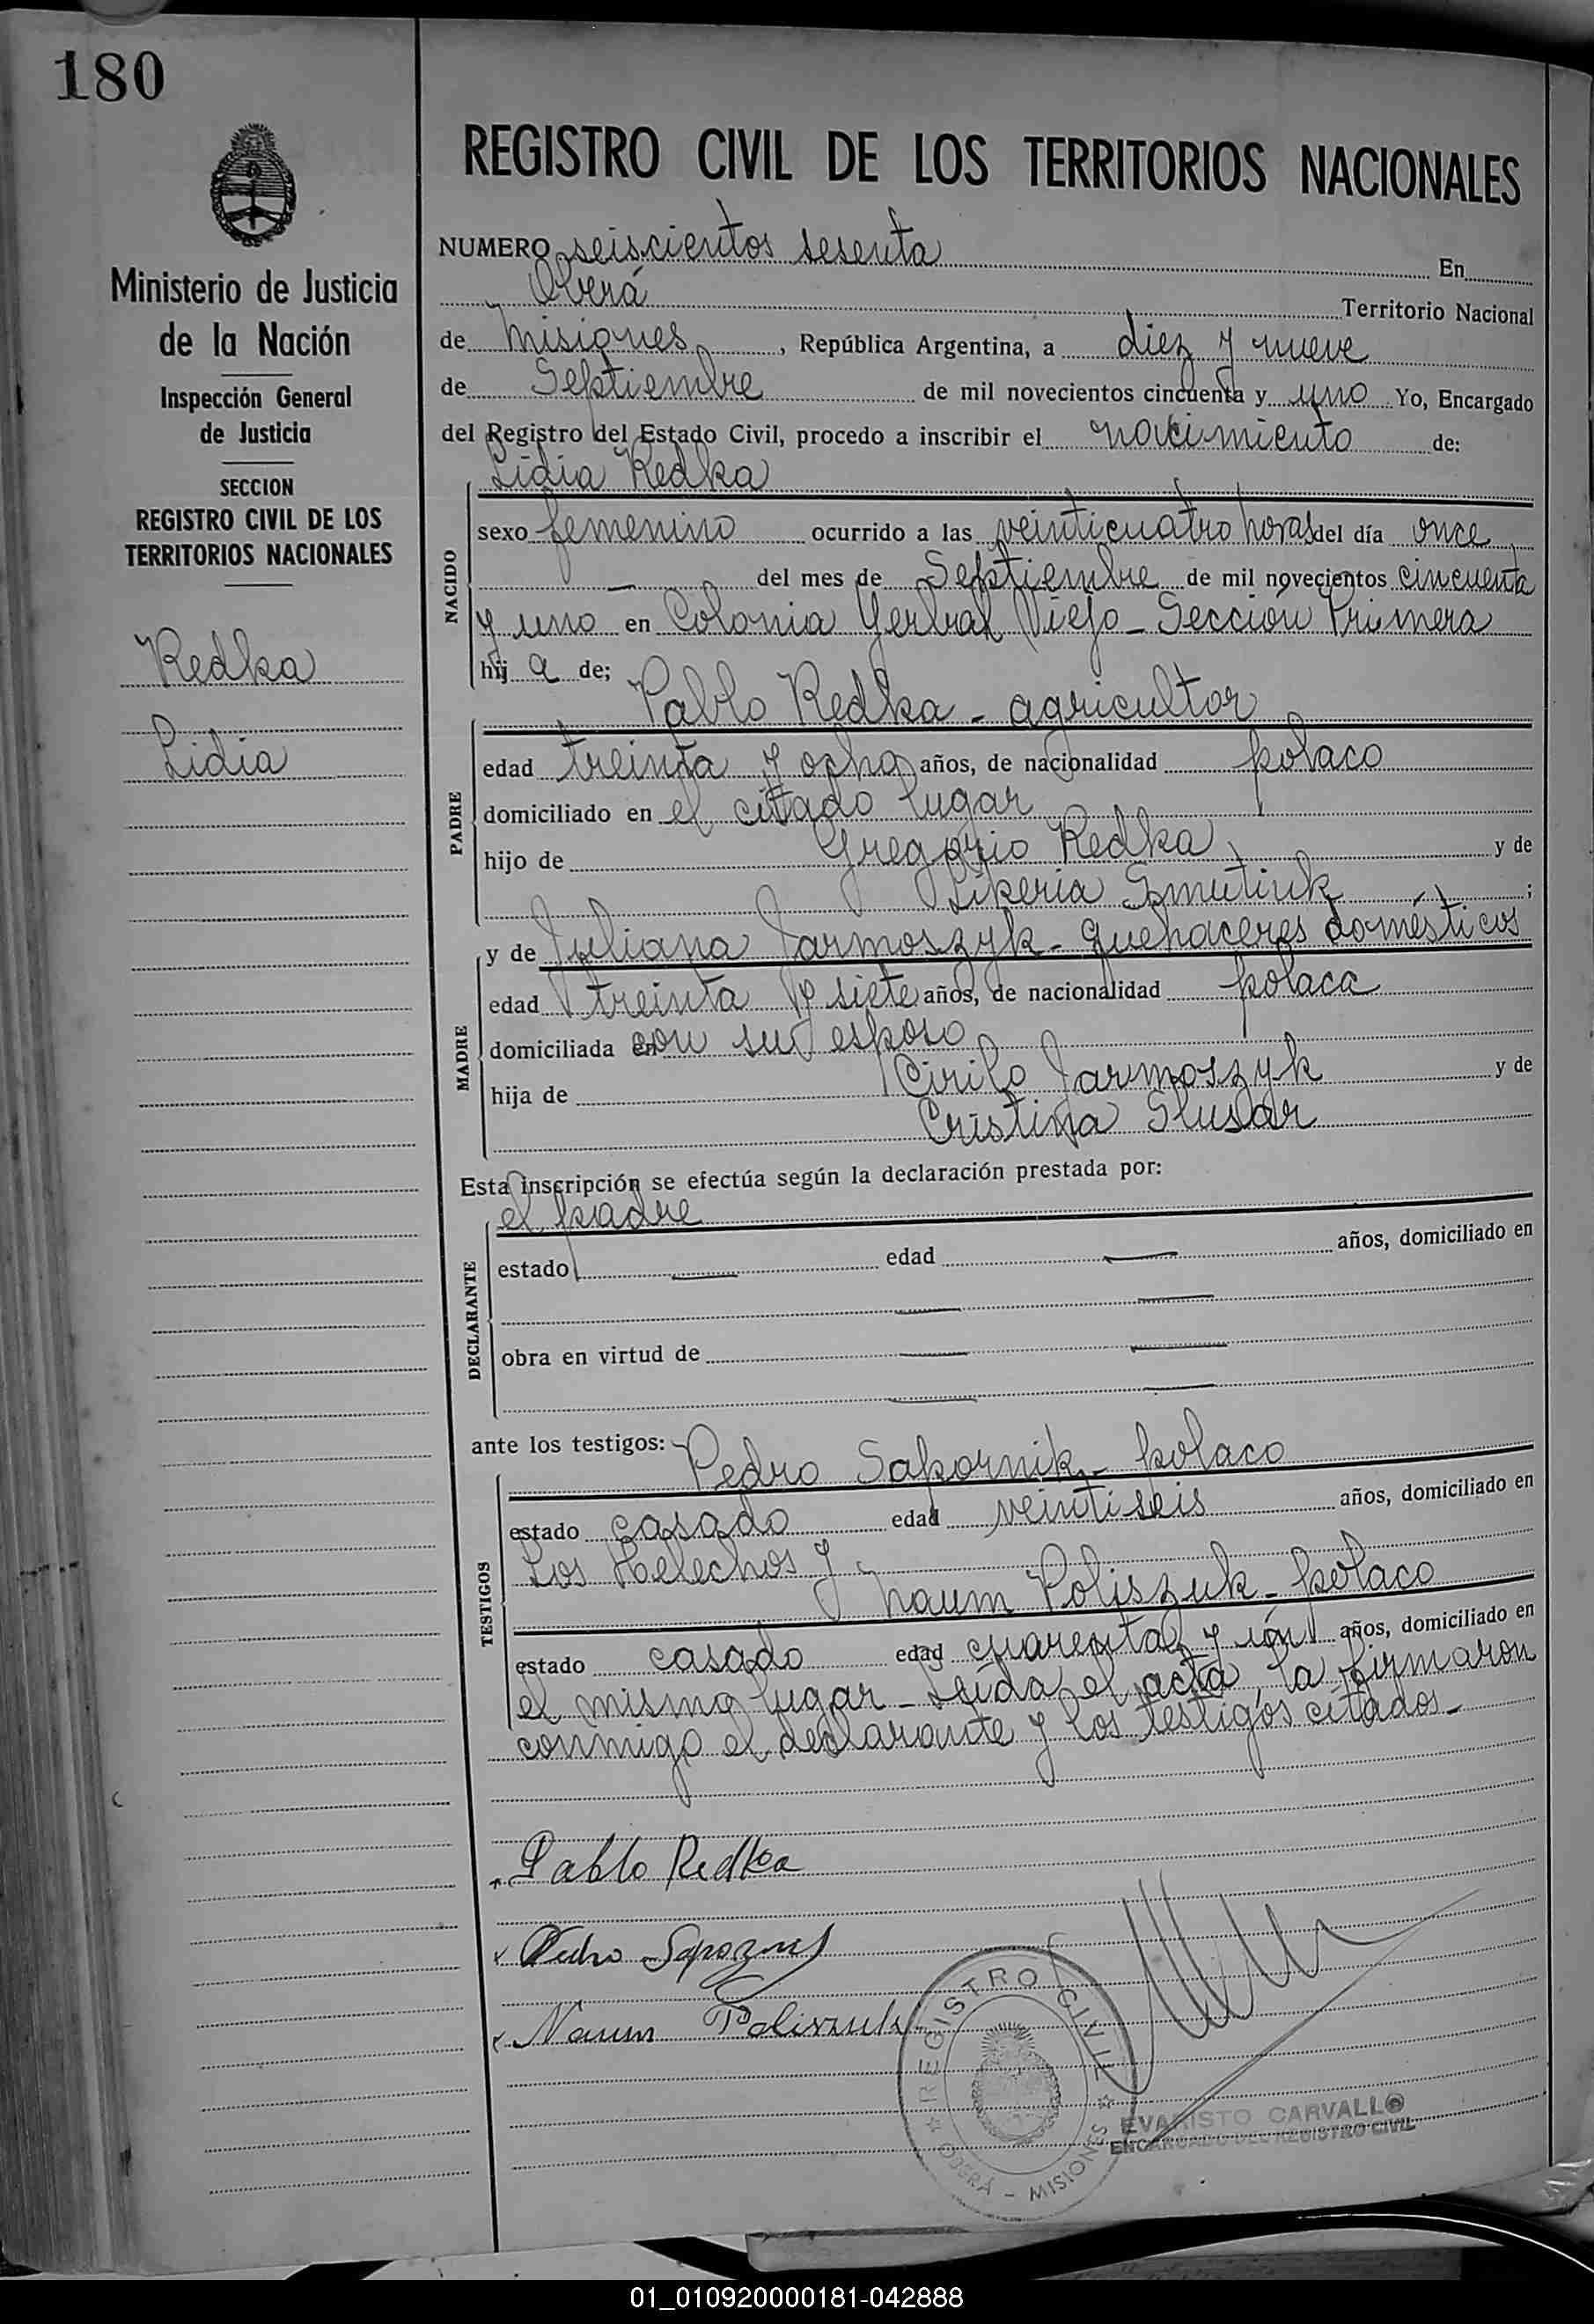 180
REGISTRO CIVIL DE LOS TERRITORIOS NACIONALES
Ministerio de Justicia
de la Nación
Inspección General
de Justicia
SECCION
REGISTRO CIVIL DE LOS
TERRITORIOS NACIONALES
Redka
Lidia
NUMERO seiscientos sesenta En
Oberá Territorio Nacional
de Misiones, República Argentina, a diez y nueve
de Septiembre de mil novecientos cincuenta y uno Yo, Encargado
del Registro del Estado Civil, procedo a inscribir el nacimiento de:
Lidia Redka
NACIDO
sexo femenino ocurrido a las veinticuatro horas del día once
— del mes de Septiembre de mil novecientos cincuenta
y uno en Colonia Yerbal Viejo - Sección Primera
hij a de;
Pablo Redka - agricultor
PADRE
edad treinta y ocho años, de nacionalidad polaco
domiciliado en el citado lugar
hijo de Gregorio Redka y de
Likeria ;
y de Juliana Jarmoszyk - quehaceres domésticos
MADRE
edad treinta y siete años, de nacionalidad polaca
domiciliada en con su esposo
hija de Cirilo Jarmoszyk y de
Cristina Slusar
Esta inscripción se efectúa según la declaración prestada por:
el padre
DECLARANTE
estado — edad — años, domiciliado en
— —
obra en virtud de — —
— —
ante los testigos: Pedro Sapornik - polaco
TESTIGOS
estado casado edad veintiseis años, domiciliado en
Los Helechos y
Naum Poliszuk - polaco
estado casado edad cuarenta y un años, domiciliado en
el mismo lugar - Leída el acta, la firmaron
conmigo el declarante y los testigos citados -
Pablo Redka
Pedro
Naum Poliszuk
REGISTRO CIVIL
OBERÁ - MISIONES
EVARISTO CARVALLO
ENCARGADO DEL REGISTRO CIVIL
01_010920000181-042888